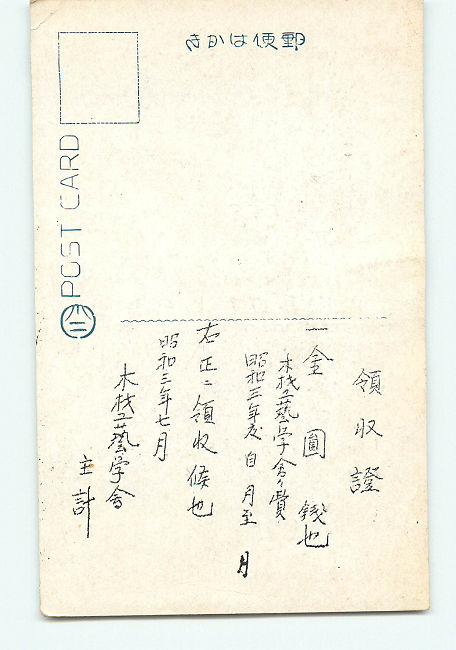 郵便はかき
POST CARD
領収證
一金 圓 錢也
木材工藝学会々費
昭和三年度自 月至 月
右正ニ領收候也
昭和三年七月
木材工藝学会
主計